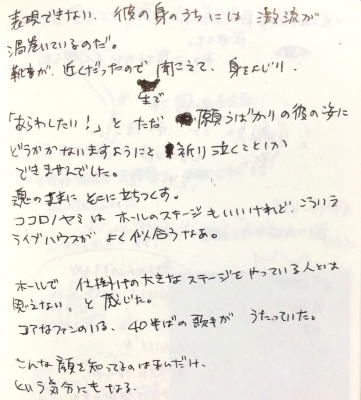 表現できない、彼の身のうちには 激流が
渦巻いているのだ。
靴音が、近くだったので 聞こえて、身をよじり、
生で
「あらわしたい!」と ただ 願うばかりの彼の姿に
どうかかないますようにと 祈り泣くことしか
できませんでした。
魂の まま そこに立ちつくす。
ココロノヤミは ホールのステージもいいけれど、こういう
ライブハウスが よく似合うなあ。
ホールで 仕掛けの大きなステージを やっている人とは
思えない。と 感じた。
コアなファンのいる、40半ばの歌手が うたっていた。
こんな顔を知ってるのは 私だけ、
という気分にもなる。